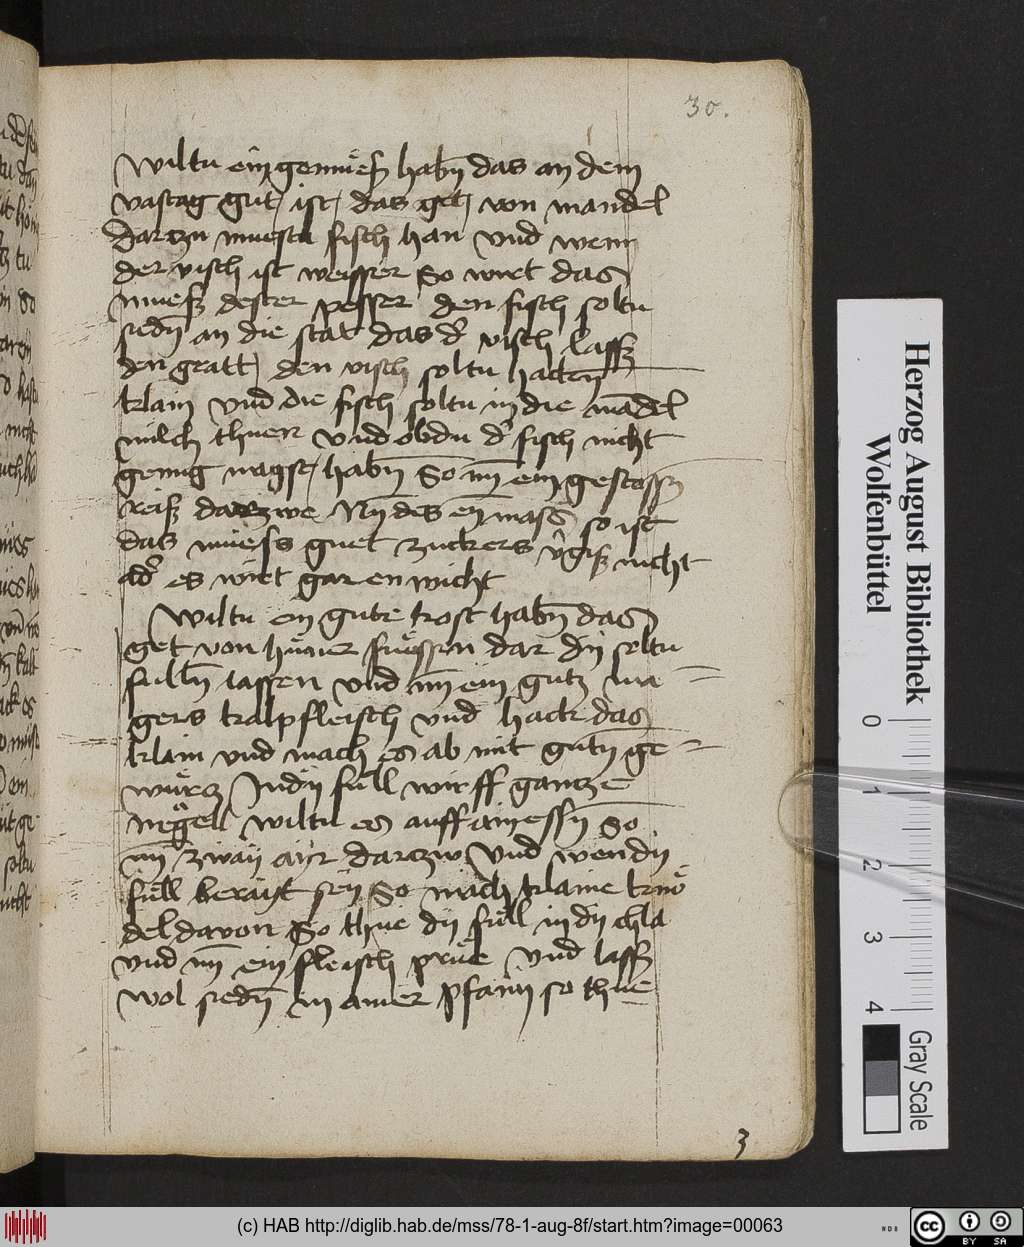 30.
wiltu ein gemuͤeß habn̄ das an dem
vastag gut ist das get von mandel
darczu muestu fisch han vnd wenn
der visch ist weisser so wirt das
mueß dester pesser den fisch soltu
siedn̄ an die stat das d' visch lasß
den gratt den visch soltu hacken
klain vnd die fisch soltu in die mādel
milch thuen vnd obdu d' fisch nicht
genug magst habn̄ So nī ein gestossn̄
reiß darzwe Nȳ des en mass so ist
das muess guet zuckers v'giß nicht
ad' es wirt gar en wicht
Wiltu ein gute kost habn̄ das
get von huͤner fuͤessen dar in soltu
fulln̄ lassen vnd nī ein gutz ma
gers kalpfleisch vnd hack das
klain vnd mach es ab mit gutn̄ ge
wuͤrcz In dÿ full wirff gancze
negell wiltu es auff ainessn̄ So
nī zwaÿ aÿr darczw vnd wen dÿ
fuͤll berait seÿ So mach klaine knoͤ
del davon So thue dÿ fuͤll in dÿ chla
vnd nī ein fleisch pruͤe vnd lasß
wol siedn̄ in ainer pfann so thue
3
Herzog August Bibliothek
Wolfenbüttel
0 1 2 3 4
Gray Scale
(c) HAB http://diglib.hab.de/mss/78-1-aug-8f/start.htm?image=00063
cc BY SA